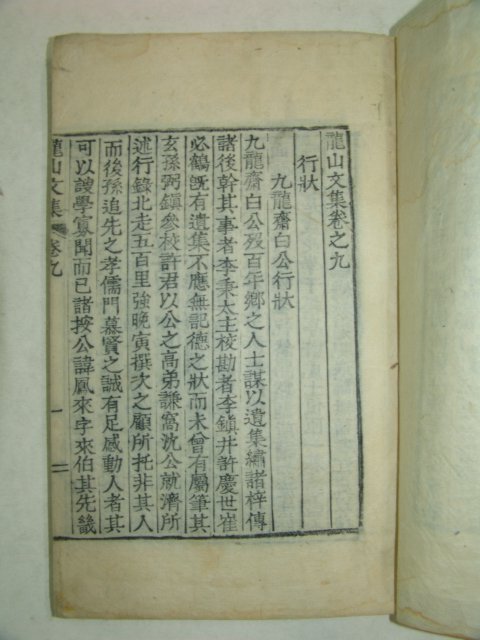 龍山文集卷之九
行狀
九龍齋白公行狀
九龍齋白公歿百年鄕之人士謀以遺集繡諸梓傳
諸後幹其事者李秉太主校勘者李鎭井許慶世崔
必鶴旣有遺集不應無記德之狀而未曾有屬筆其
玄孫弼鎭參校許君以公之高弟謙窩沈公就濟所
述行錄北走五百里強晩寅撰次之顧所托非其人
而後孫追先之孝儒門慕賢之誠有足感動人者其
可以謏學寡聞而已諸按公諱鳳來字來伯其先畿
龍山文集 卷九 一